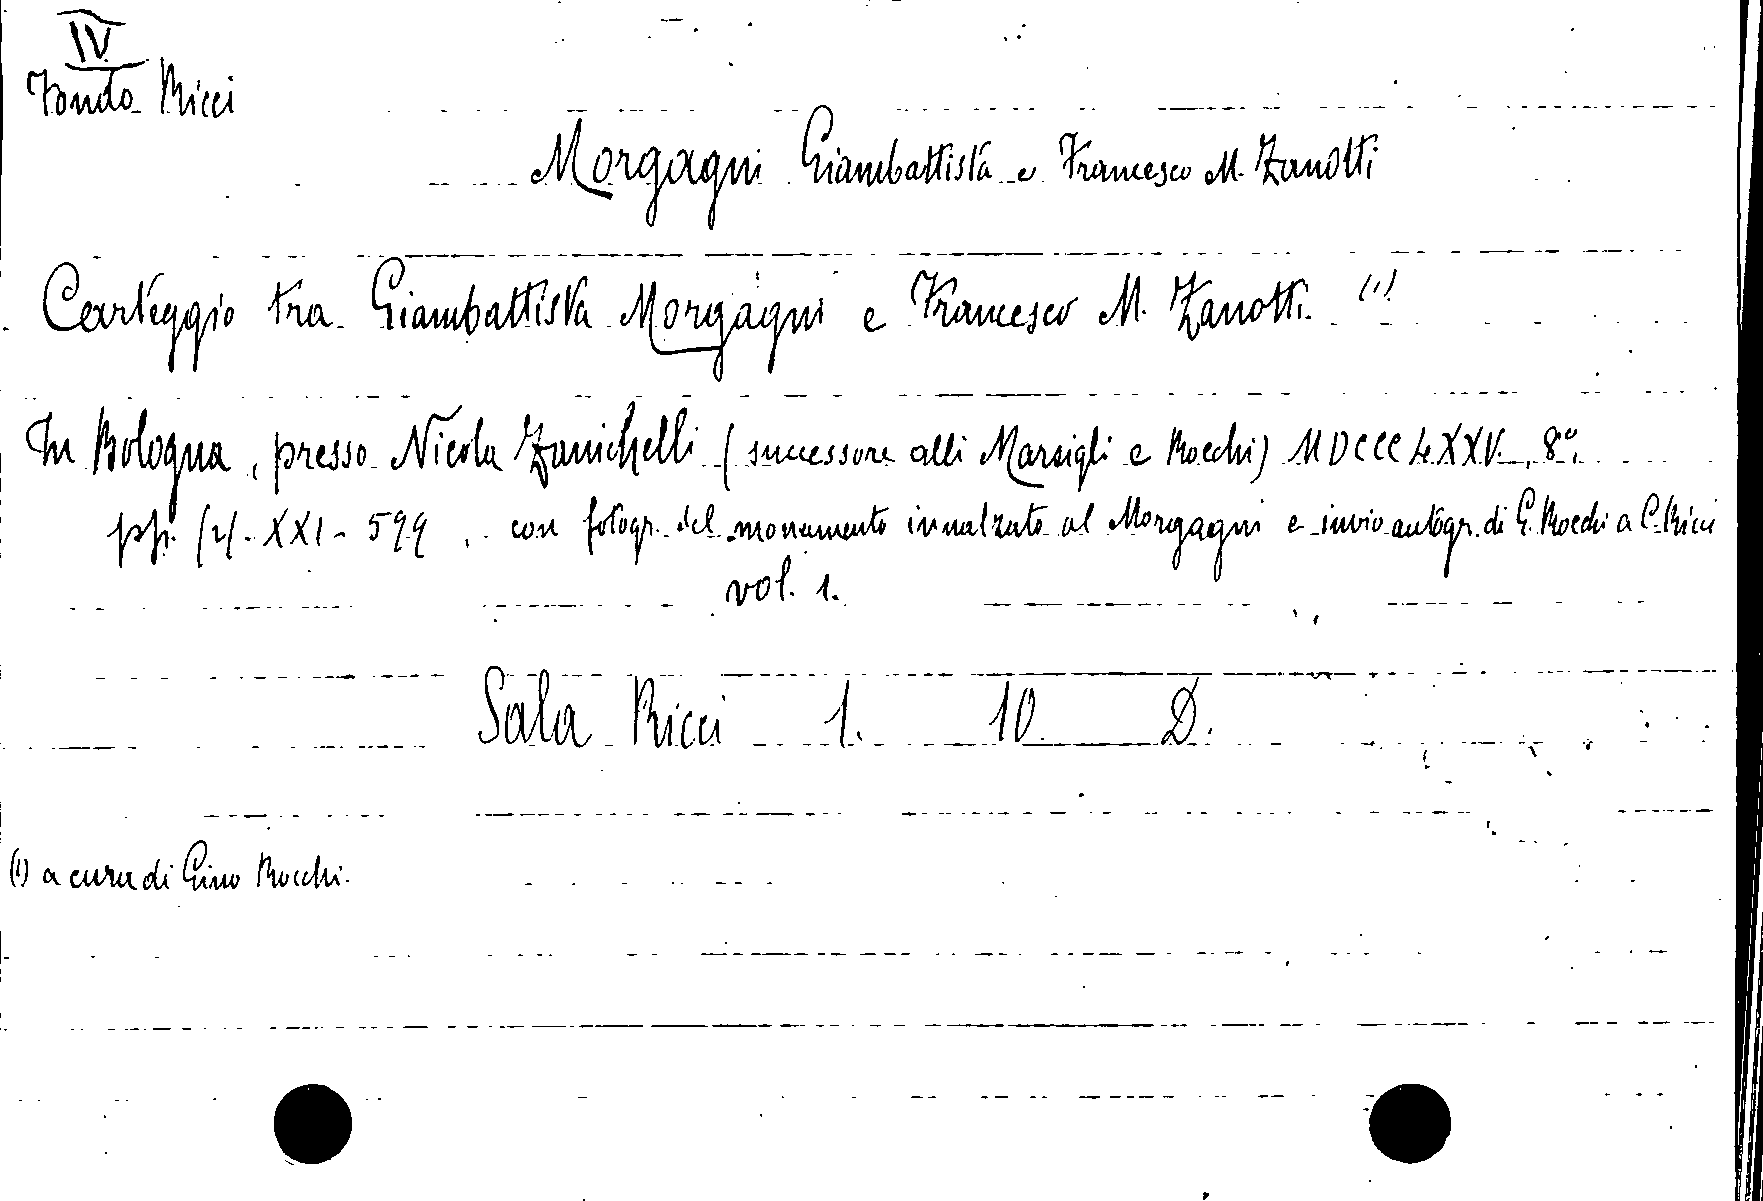 IV
Fondo Ricci
Morgagni Giambattista e Francesco M. Zanotti
Carteggio tra Giambattista Morgagni e Francesco M. Zanotti. (1)
In Bologna, presso Nicola Zanichelli (successore alli Marsigli e Rocchi) MDCCCLXXV. 8°.
pp. (2)-XXI-599, con fotogr. del monumento innalzato al Morgagni e invio autogr. di G. Rocchi a C. Ricci
vol. 1.
Sala Ricci 1. 10. D.
(1) a cura di Gino Rocchi.